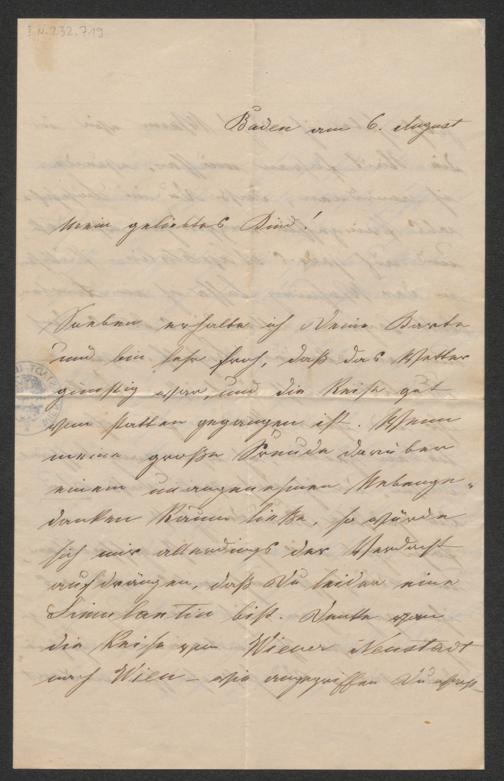 I.N. 232.719
Baden am 6. August
Mein geliebtes Kind!
Soeben erhalte ich Deine Karte
und bin sehr froh, daß das Wetter
günstig war, und die Reise gut
von statten gegangen ist. Wenn
meine große Freude darüber
einem unangenehmen Nebenge-
danken Raum ließe, so würde
sich mir allerdings der Verdacht
aufdrängen, daß Du leider eine
Simulantin bist. Denke an
die Reise von Wiener Neustadt
nach Wien – wie angegriffen Du warst